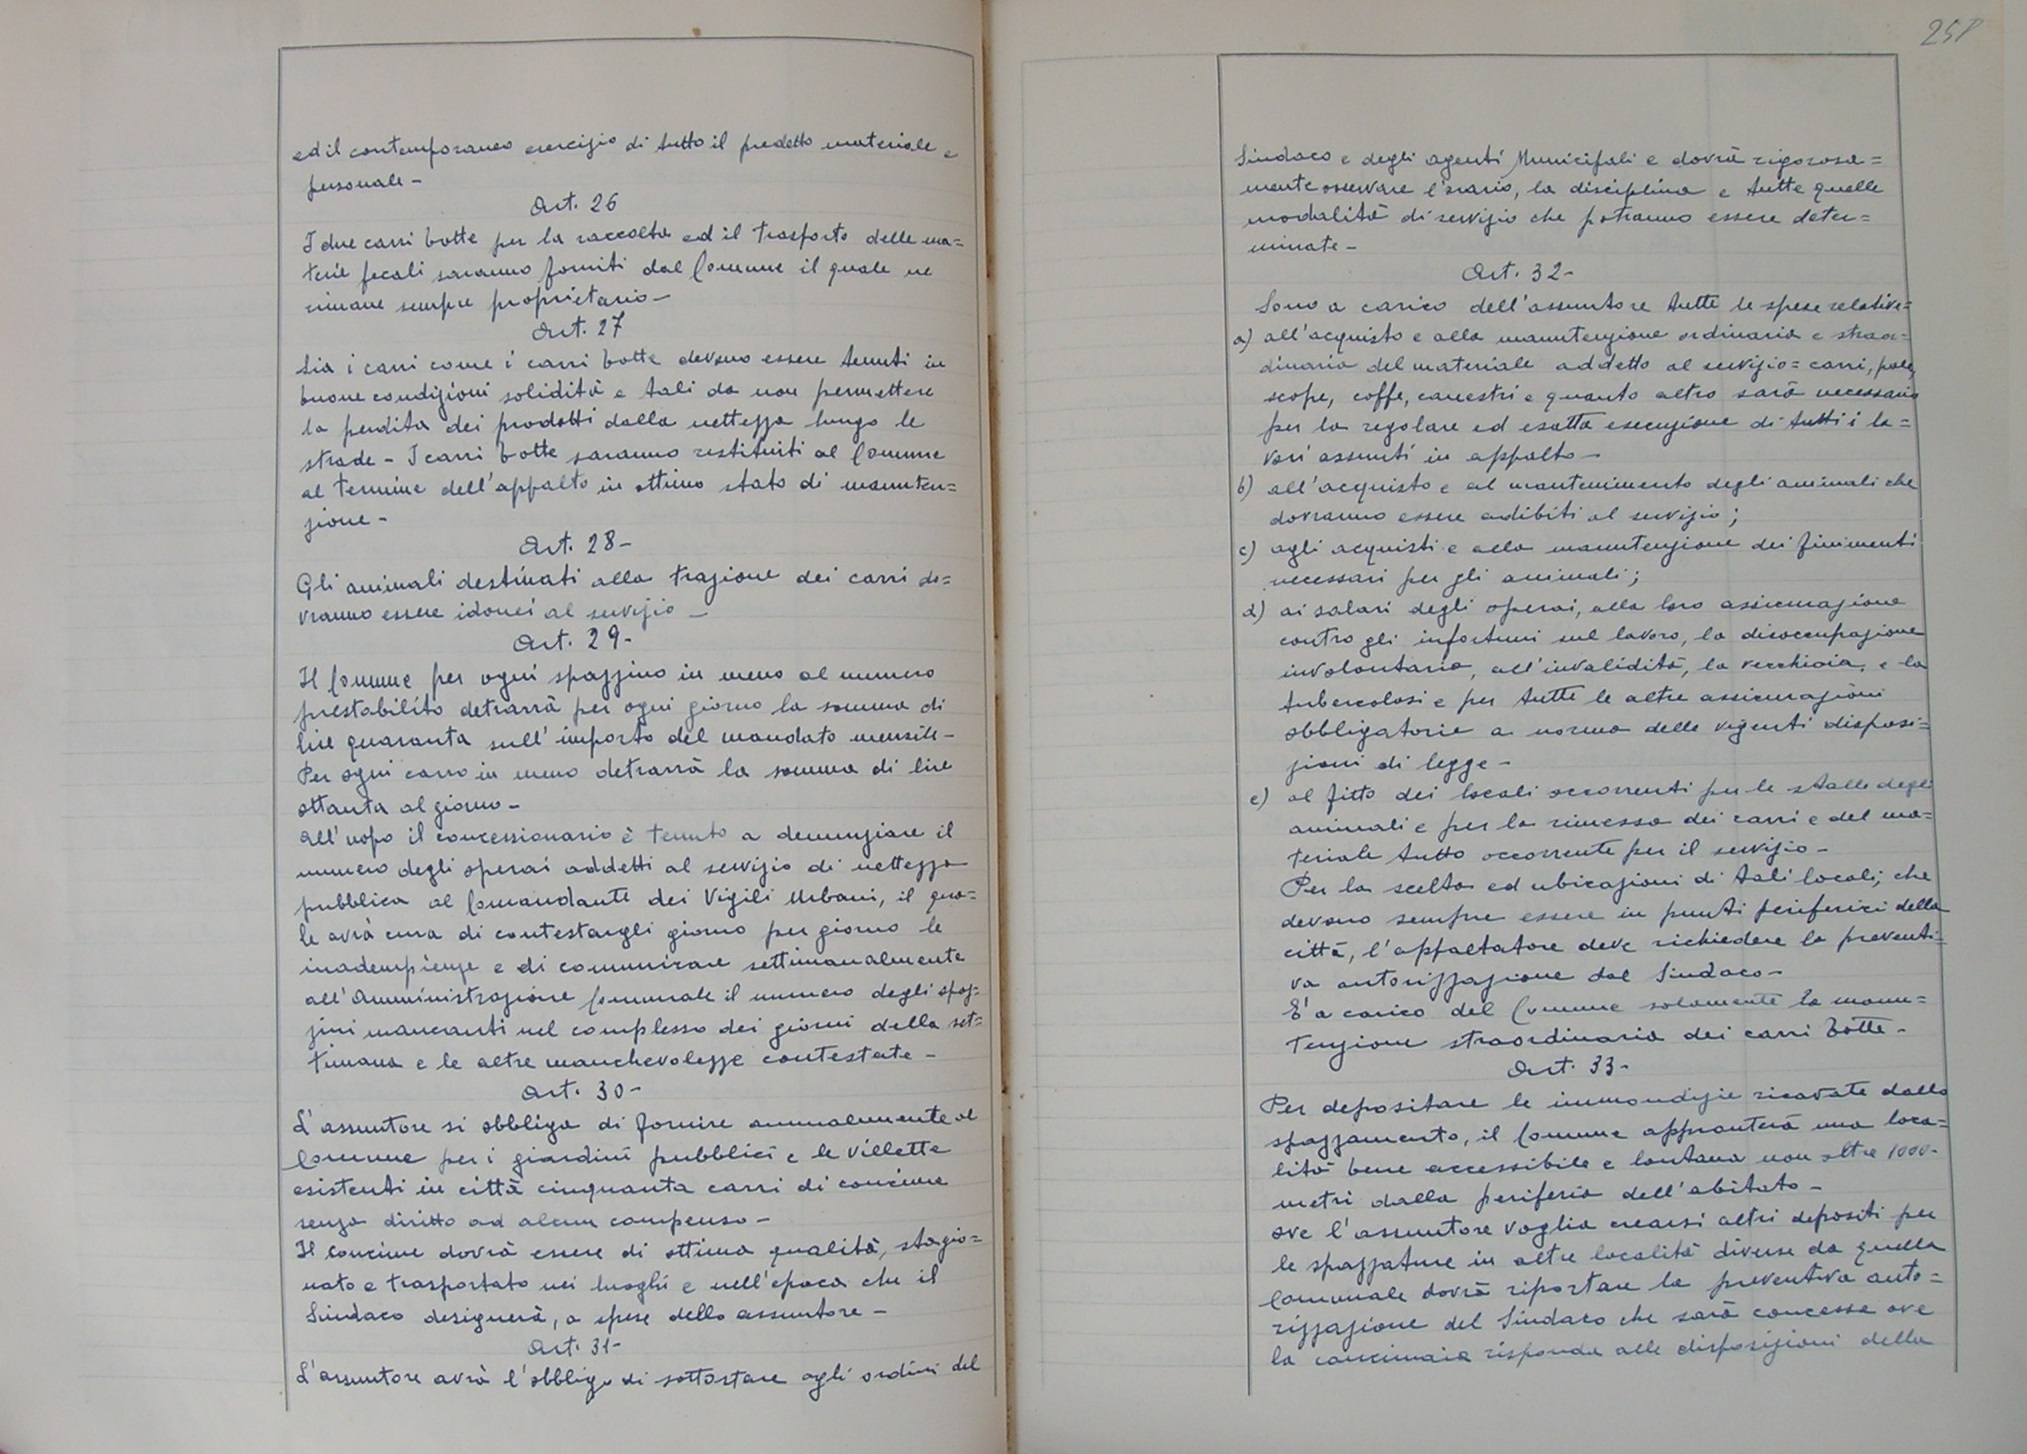 ed il contemporaneo esercizio di tutto il predetto materiale e
personale -
Art. 26
I due carri botte per la raccolta ed il trasporto delle ma=
terie fecali saranno forniti dal Comune il quale ne
rimane sempre proprietario -
Art. 27
Sia i carri come i carri botte devono essere tenuti in
buone condizioni solidità e tali da non permettere
la perdita dei prodotti dalla nettezza lungo le
strade - I carri botte saranno restituiti al Comune
al termine dell'appalto in ottimo stato di manuten=
zione -
Art. 28 -
Gli animali destinati alla trazione dei carri do=
vranno essere idonei al servizio -
Art. 29 -
Il Comune per ogni spazzino in meno al numero
prestabilito detrarrà per ogni giorno la somma di
lire quaranta sull'importo del mandato mensile -
Per ogni carro in meno detrarrà la somma di lire
ottanta al giorno -
All'uopo il concessionario è tenuto a denunziare il
numero degli operai addetti al servizio di nettezza
pubblica al Comandante dei Vigili Urbani, il qua=
le avrà cura di contestargli giorno per giorno le
inadempienze e di comunicare settimanalmente
all'Amministrazione Comunale il numero degli spaz=
zini mancanti nel complesso dei giorni della set=
timana e le altre manchevolezze contestate -
Art. 30 -
L'assuntore si obbliga di fornire annualmente al
Comune per i giardini pubblici e le villette
esistenti in città cinquanta carri di concime
senza diritto ad alcun compenso -
Il concime dovrà essere di ottima qualità, stagio=
nato e trasportato nei luoghi e nell'epoca che il
Sindaco designerà, a spese dello assuntore -
Art. 31 -
L'assuntore avrà l'obbligo di sottostare agli ordini del
Sindaco e degli agenti Municipali e dovrà rigorosa=
mente osservare l'orario, la disciplina e tutte quelle
modalità di servizio che potranno essere deter=
minate -
Art. 32 -
Sono a carico dell'assuntore tutte le spese relative=
a) all'acquisto e alla manutenzione ordinaria e straor=
dinaria del materiale addetto al servizio= carri, pale,
scope, coffe, canestri e quanto altro sarà necessario
per la regolare ed esatta esecuzione di tutti i la=
vori assunti in appalto -
b) all'acquisto e al mantenimento degli animali che
dovranno essere adibiti al servizio;
c) agli acquisti e alla manutenzione dei finimenti
necessari per gli animali;
d) ai salari degli operai, alla loro assicurazione
contro gli infortuni sul lavoro, la disoccupazione
involontaria, all'invalidità, la vecchiaia, e la
tubercolosi e per tutte le altre assicurazioni
obbligatorie a norma delle vigenti disposi=
zioni di legge -
e) al fitto dei locali occorrenti per le stalle degli
animali e per la rimessa dei carri e del ma=
teriale tutto occorrente per il servizio -
Per la scelta ed ubicazioni di tali locali, che
devono sempre essere in punti periferici della
città, l'appaltatore deve richiedere la preventi=
va autorizzazione dal Sindaco -
E' a carico del Comune solamente la manu=
tenzione straordinaria dei carri botte -
Art. 33 -
Per depositare le immondizie ricavate dallo
spazzamento, il Comune appronterà una loca=
lità bene accessibile e lontana non oltre 1000 -
metri dalla periferia dell'abitato -
ove l'assuntore voglia crearsi altri depositi per
le spazzature in altre località diverse da quella
Comunale dovrà riportare la preventiva auto=
rizzazione del Sindaco che sarà concessa ove
la concimaia risponda alle disposizioni della